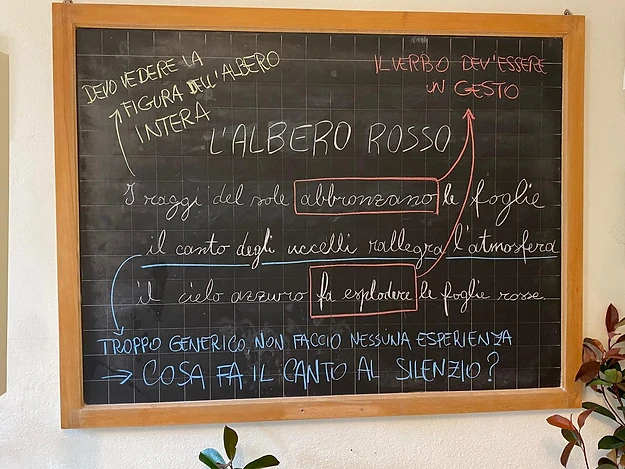 DEVO VEDERE LA
FIGURA DELL'ALBERO
INTERA
IL VERBO DEV'ESSERE
UN GESTO
L'ALBERO ROSSO
I raggi del sole abbronzano le foglie
il canto degli uccelli rallegra l'atmosfera
il cielo azzurro fa esplodere le foglie rosse.
TROPPO GENERICO, NON FACCIO NESSUNA ESPERIENZA
→ COSA FA IL CANTO AL SILENZIO?